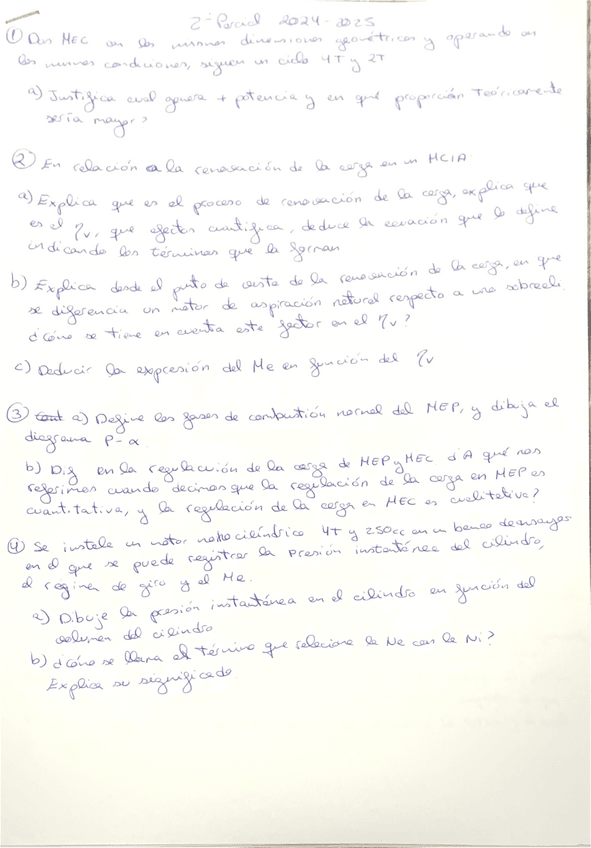 2º Parcial 2024-2025
① Dos MEC con las mismas dimensiones geométricas y operando en
las mismas condiciones, siguen un ciclo 4T y 2T
a) Justifica cual genera + potencia y en qué proporción Teóricamente
sería mayor?
② En relación a la renovación de la carga en un MCIA
a) Explica que es el proceso de renovación de la carga, explica que
es el ηv, que efectos cuantifica, deduce la ecuación que lo define
indicando los términos que la forman
b) Explica desde el punto de vista de la renovación de la carga, en que
se diferencia un motor de aspiración natural respecto a uno sobreali.
¿Cómo se tiene en cuenta este factor en el ηv?
c) Deducir la expresión del Me en función del ηv
③ a) Define las fases de combustión normal del MEP, y dibuja el
diagrama P-α
b) Dif en la regulación de la carga de MEP y MEC ¿A qué nos
referimos cuando decimos que la regulación de la carga en MEP es
cuantitativa, y la regulación de la carga en MEC es cualitativa?
④ Se instala un motor monocilíndrico 4T y 250cc en un banco de ensayos
en el que se puede registrar la presión instantánea del cilindro,
el régimen de giro y el Me.
a) Dibuje la presión instantánea en el cilindro en función del
volumen del cilindro
b) ¿Cómo se llama el término que relaciona la Ne con la Ni?
Explica su significado